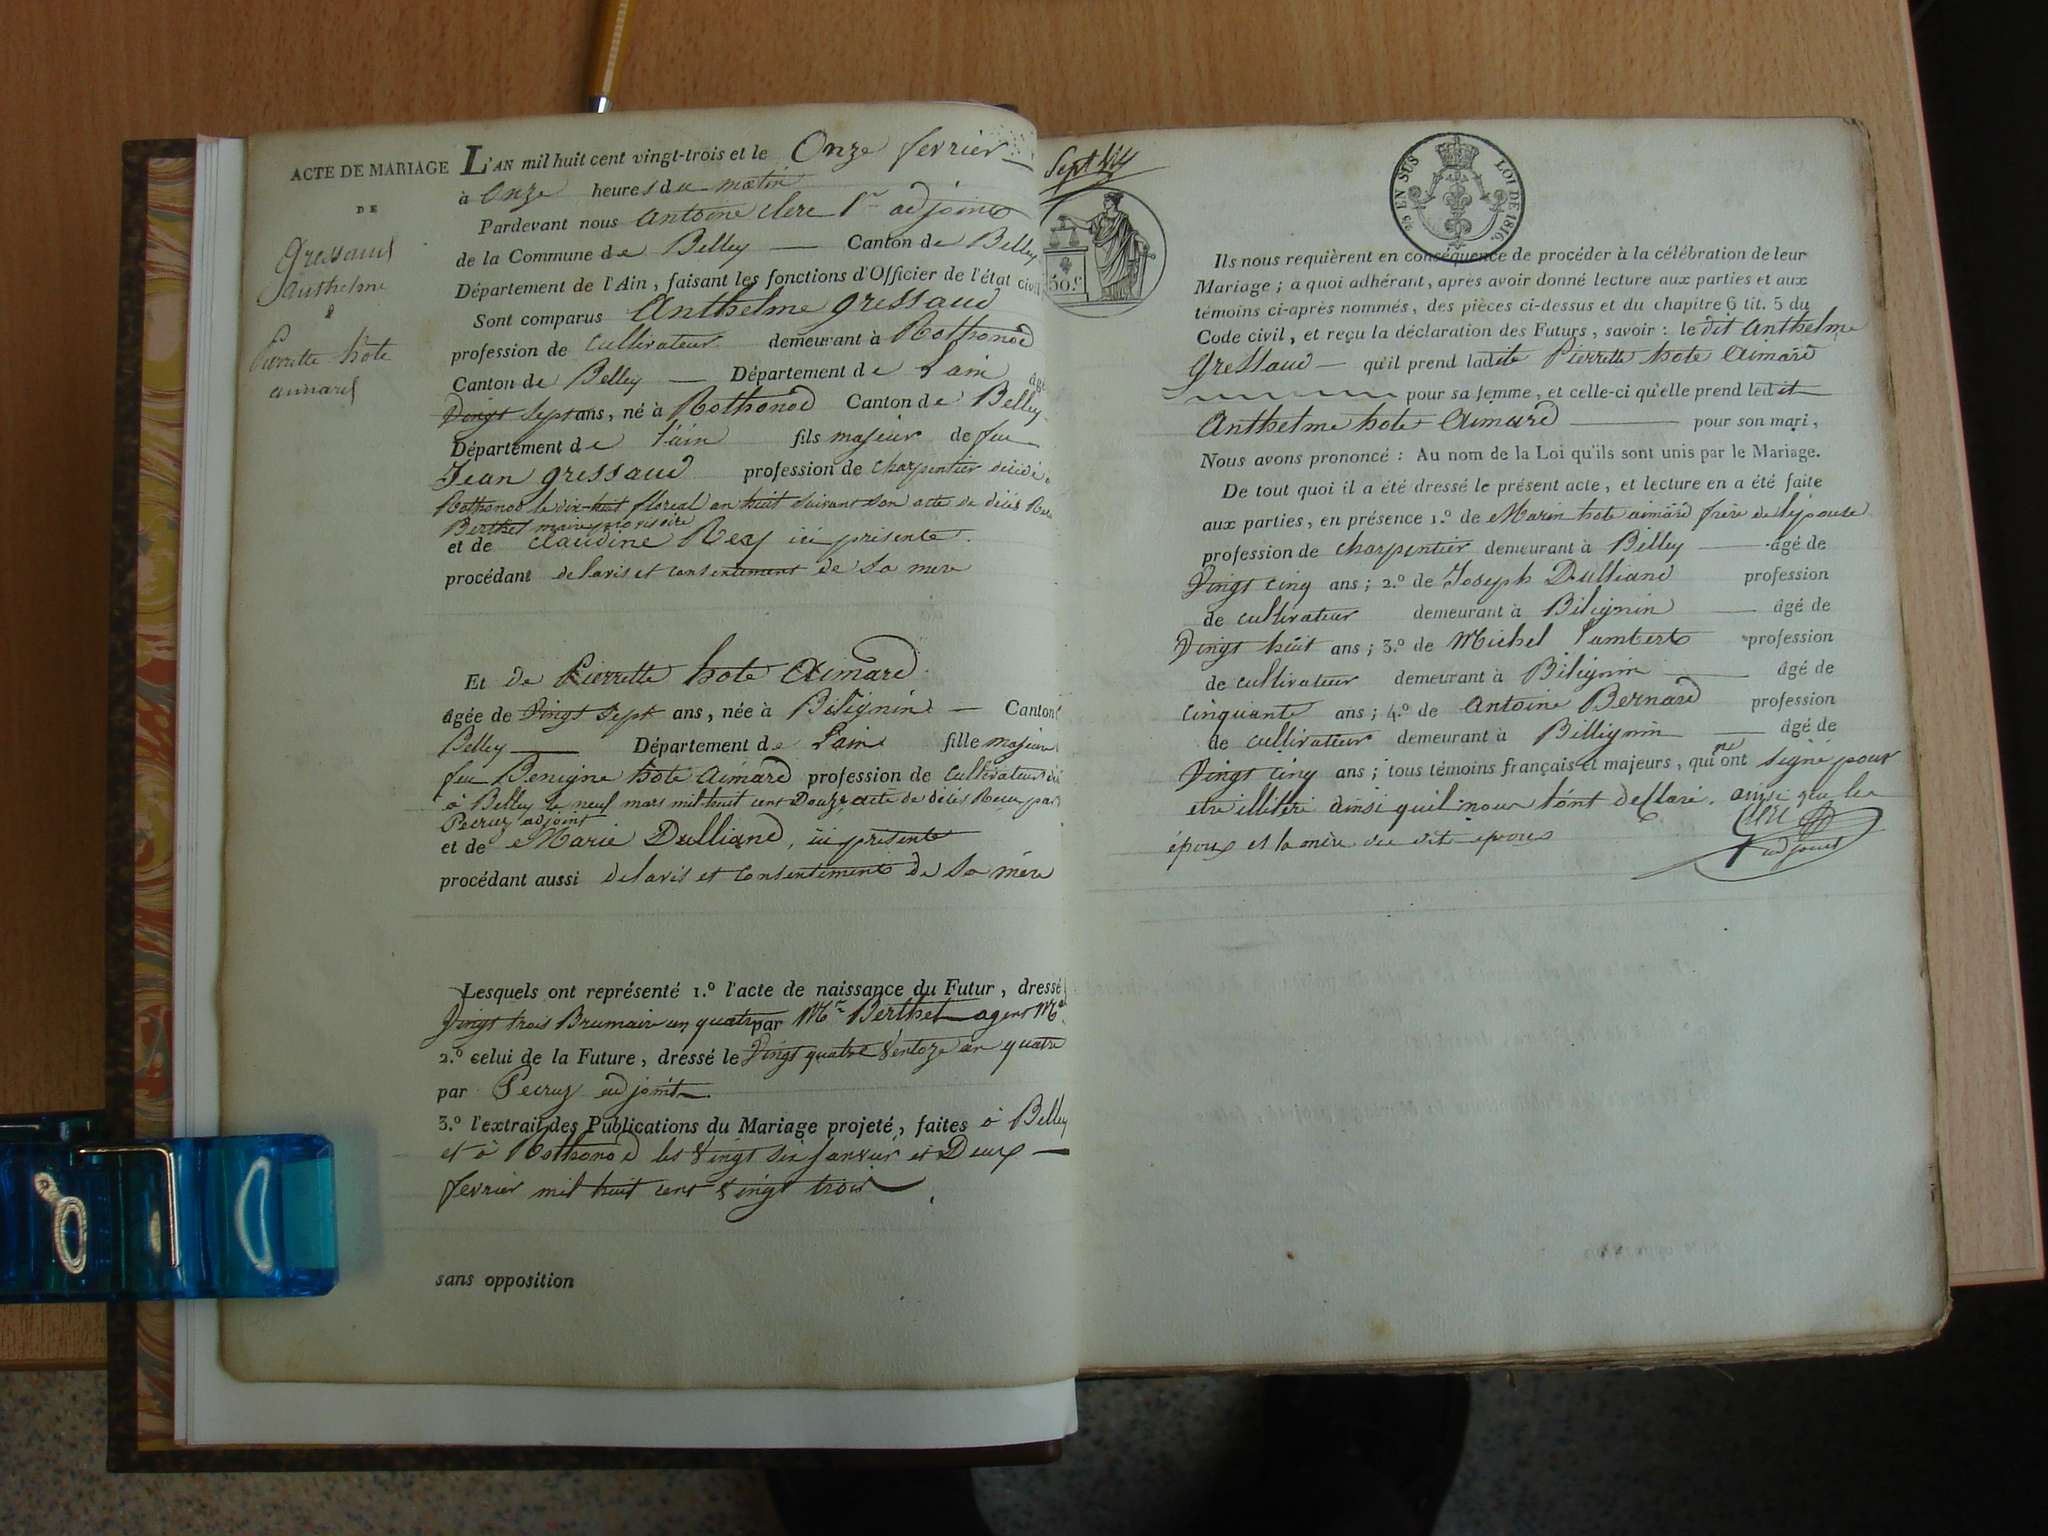 ACTE DE MARIAGE
DE
Gressaud
Anthelme
&
Pierrette hote
aimard
L'AN mil huit cent vingt-trois et le Onze fevrier
à Onze heures du matin
Pardevant nous Antoine clerc 1er adjoint
de la Commune de Belley — Canton de Belley
Département de l'Ain, faisant les fonctions d'Officier de l'état civil
Sont comparus Anthelme gressaud
profession de Cultivateur demeurant à Rothonod
Canton de Belley — Département de Lain âgé
Vingt sept ans, né à Rothonod Canton de Belley
Département de l'ain fils majeur de feu
Jean gressaud profession de charpentier décédé
Rothonod le dix huit floreal an huit suivant son acte de décés
Berthet maire provisoire
et de Claudine Rey ici presente
procédant de lavis et consentement de sa mere
Et de Pierrette hote Aimard
âgée de Vingt sept ans, née à Bilignin — Canton
Belley — Département de Lain fille majeure
feu Benigne hote aimard profession de Cultivateur
à Belley le neuf mars mil huit cent Douze acte de décés Recu par
Pecruz adjoint
et de Marie Dulliand, ici presente
procédant aussi de lavis et Consentement de sa mère
Lesquels ont représenté 1.º l'acte de naissance du Futur, dressé
Vingt trois Brumaire an quatre par Mr Berthet agent
2.º celui de la Future, dressé le Vingt quatre Ventoze an quatre
par Pecruz adjoint
3.º l'extrait des Publications du Mariage projeté, faites à Belley
et à Rothonod les Vingt six Janvier et Deux —
fevrier mil huit cent Vingt trois
sans opposition
50.c
c. EN SUS LOI DE 1816.
Ils nous requièrent en conséquence de procéder à la célébration de leur
Mariage; à quoi adhérant, après avoir donné lecture aux parties et aux
témoins ci-après nommés, des pièces ci-dessus et du chapitre 6 tit. 5 du
Code civil, et reçu la déclaration des Futurs, savoir: le dit Anthelme
gressaud — qu'il prend ladite Pierrette hote Aimard
pour sa femme, et celle-ci qu'elle prend ledit
Anthelme hote Aimard — pour son mari,
Nous avons prononcé: Au nom de la Loi qu'ils sont unis par le Mariage.
De tout quoi il a été dressé le présent acte, et lecture en a été faite
aux parties, en présence 1.º de Marin hote aimard frère de lépouse
profession de charpentier demeurant à Belley — âgé de
Vingt cinq ans; 2.º de Joseph Dulliand profession
de cultivateur demeurant à Bilignin — âgé de
Vingt huit ans; 3.º de Michel Lambert profession
de cultivateur demeurant à Bilignin — âgé de
Cinquante ans; 4.º de Antoine Bernard profession
de cultivateur demeurant à Billignin — âgé de
Vingt cinq ans; tous témoins français et majeurs, qui nont signé pour
etre illiteré ainsi quil nous lont declaré, ainsi que les
époux et la mère du dit epoux
Clerc
adjoint